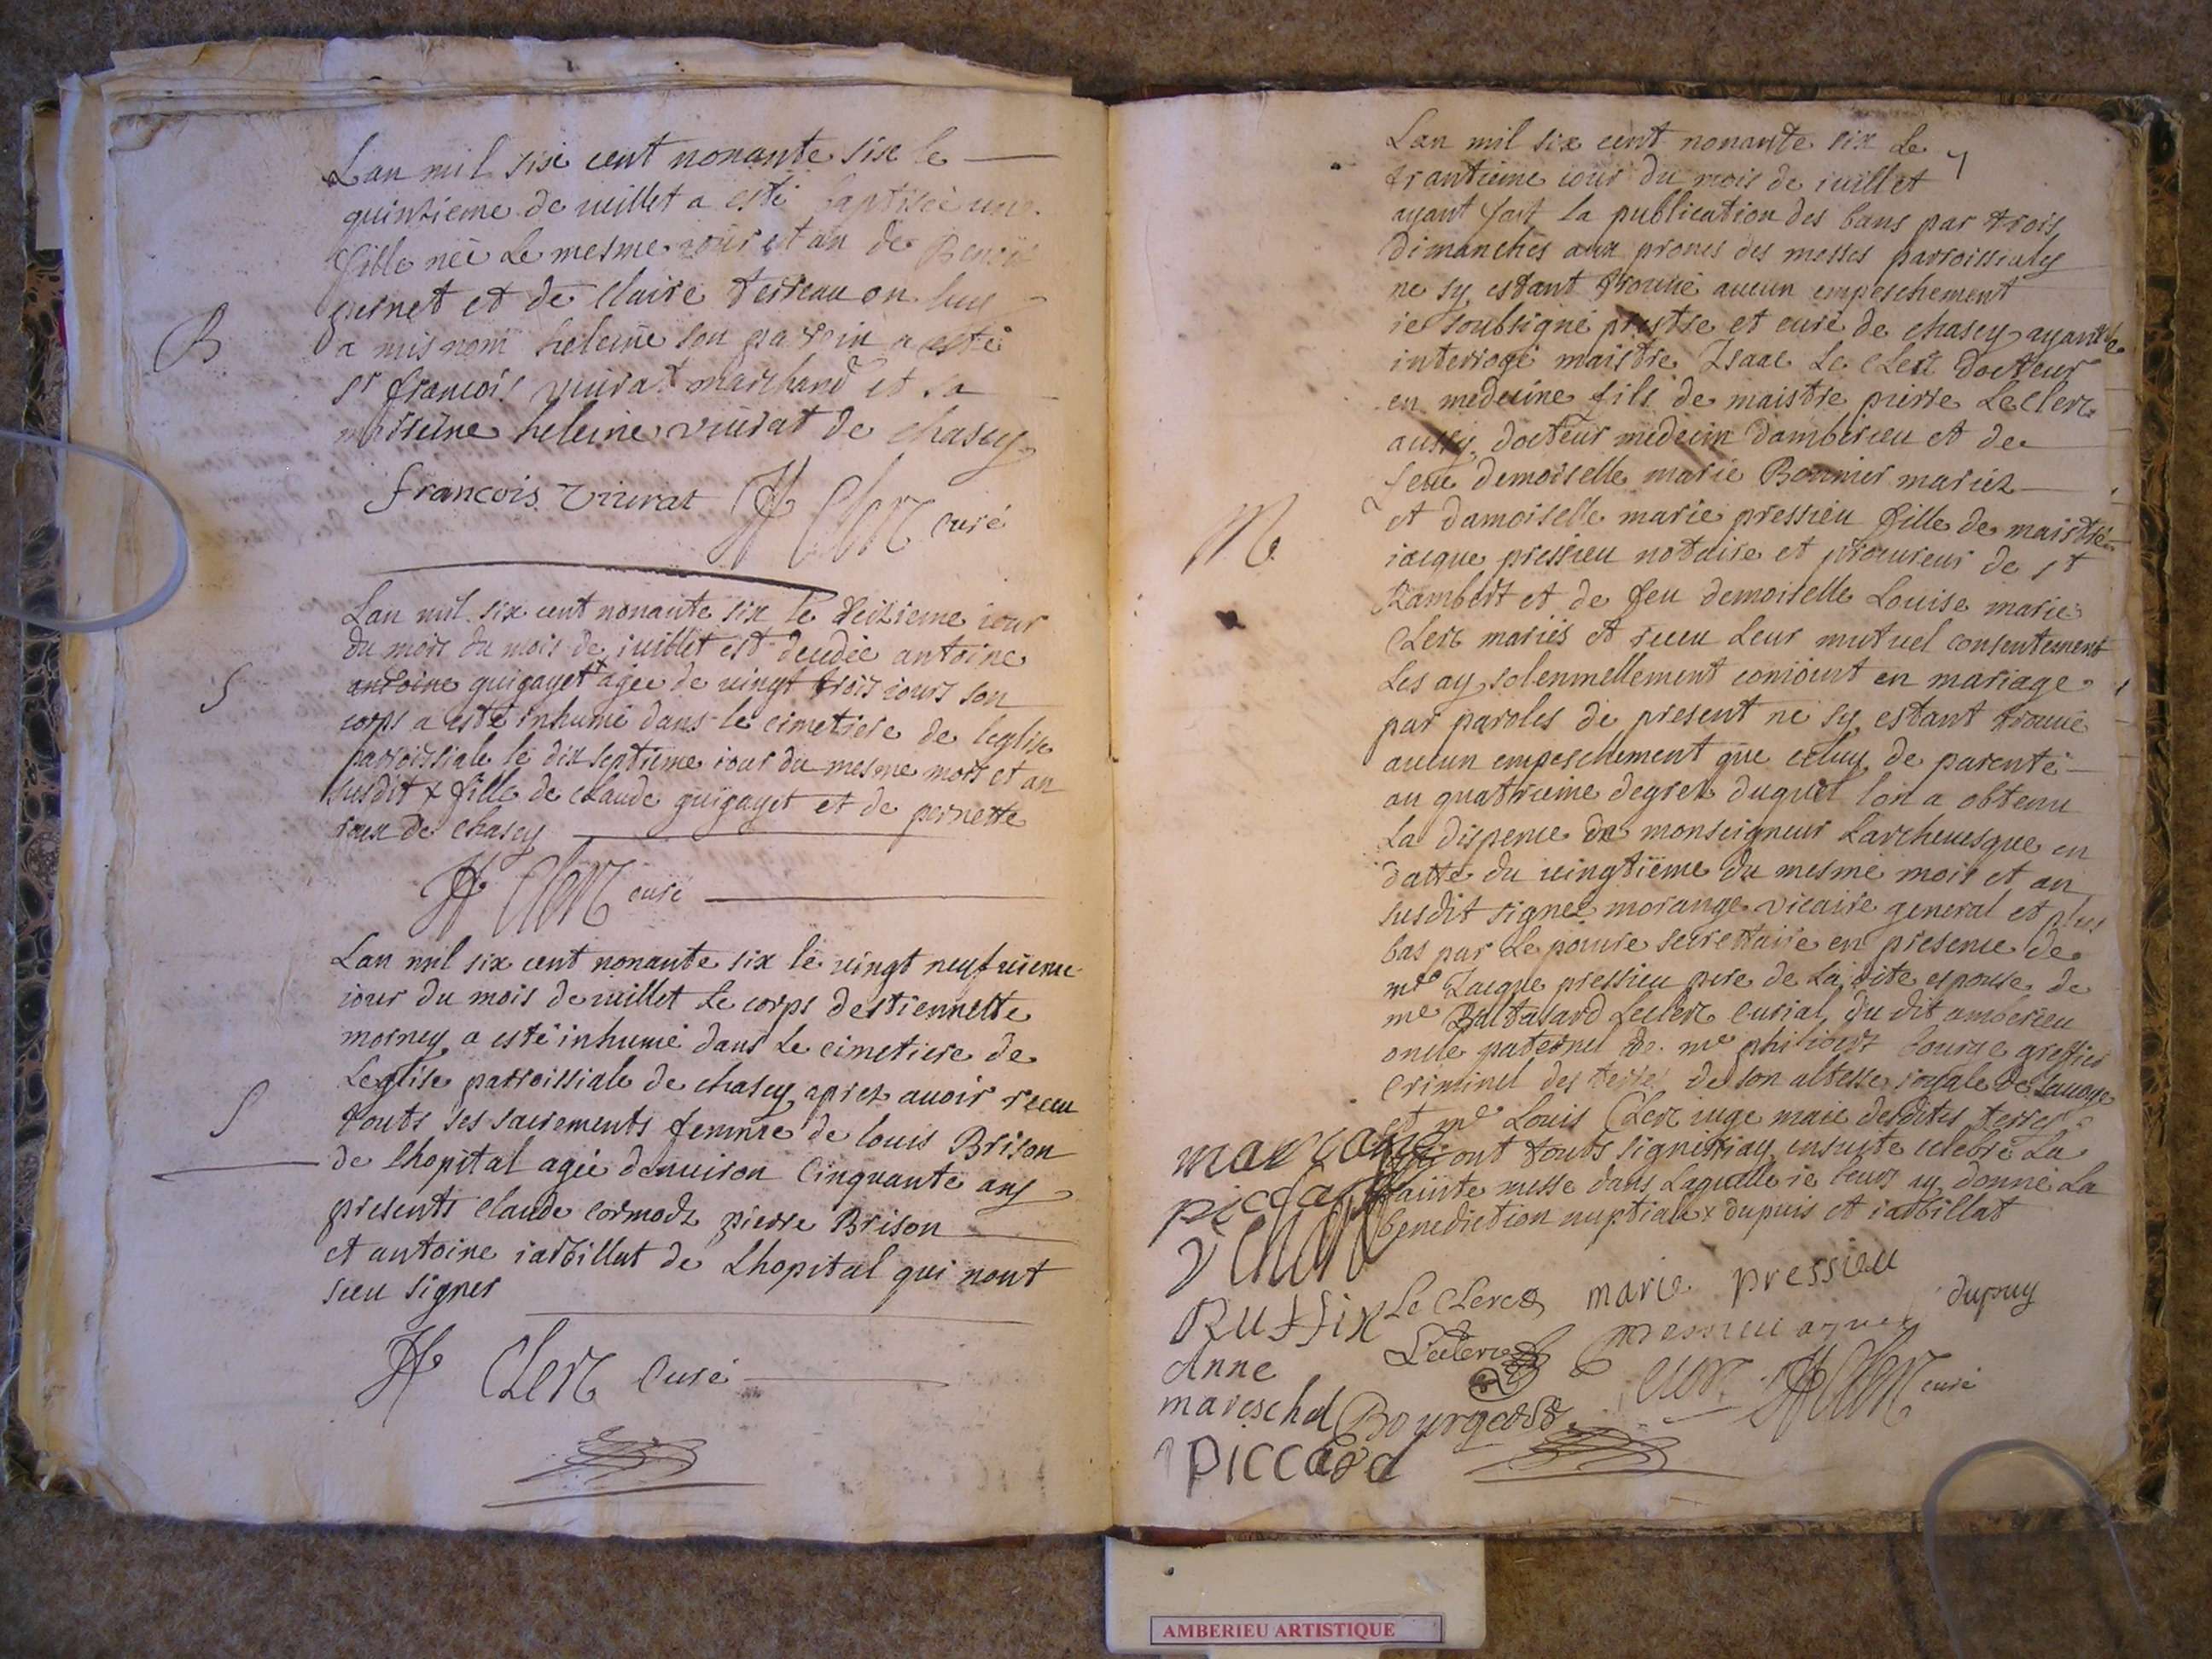 Lan mil six cent nonante six le
quinzieme de iuillet a esté baptisée une
fille née le mesme iour et an de Benoit
pernet et de claire terreau on luy
B
a mis nom heleine son parrin a esté
sr francois viurat marchand et sa
marreine heleine viurat de chasey
francois viurat H Clerc curé
Lan mil six cent nonante six le seizieme iour
du mois du mois de iuillet est decedée antoine
S
antoine guigayet agée de uingt trois iours son
corps a esté inhumé dans le cimetiere de leglise
parroissiale le dix septieme iour du mesme mois et an
susdit x fille de claude guigayet et de pernette
roux de chasey
H Clerc curé
Lan mil six cent nonante six le uingt neufuieme
iour du mois de iuillet le corps destiennette
morney a esté inhumé dans le cimetiere de
Leglise parroissiale de chasey apres auoir receu
S
touts ses sacrements femme de louis Brison
de lhopital agée denuiron Cinquante ans
presents claude cormodz pierre Brison
et antoine iarbillat de Lhopital qui nont
sceu signer
H Clerc Curé
Lan mil six cent nonante six Le
trantieme iour du mois de iuillet
ayant fait la publication des bans par trois
dimanches aux prones des messes parroissiales
ne sy estant trouué aucun empeschement
ie soubsigné prestre et curé de chasey ayant
interrogé maistre Isaac Le Clerc docteur
en medecine fils de maistre pierre LeClerc
aussy docteur medecin damberieu et de
feue demoiselle marie Bonnier mariez
M
et damoiselle marie pressieu fille de maistre
iacque pressieu notaire et procureur de st
Rambert et de feu demoiselle Louise marie
Clerc mariés et receu Leur mutuel consentement
Les ay solennellement conioint en mariage
par paroles de present ne sy estant trouué
aucun empeschement que celuy de parenté
au quatrieme degrez duquel lon a obtenu
La dispence de monseigneur Larcheuesque en
datte du uingtieme du mesme mois et an
susdit signez morange vicaire general et plus
bas par Le poiure secrettaire en presence de
mre Iacque pressieu pere de La dite espouse de
me Baltasard Leclerc curial du dit amberieu
oncle paternel de me philibert bourge greffier
Criminel des terres de son altesse royale de Sauoye
et me Louis Clerc iuge maie desdites terres
qui ont touts signez iay ensuite celebré La
sainte messe dans Laquelle ie leurs ay donné La
benediction nuptiale x dupuis et iarbillat
Le Clerc marie pressieu
dupuy
Leclerc pressieu
H Clerc curé
Bourgeois
Ruffix
Anne
mareschal
piccard
AMBERIEU ARTISTIQUE